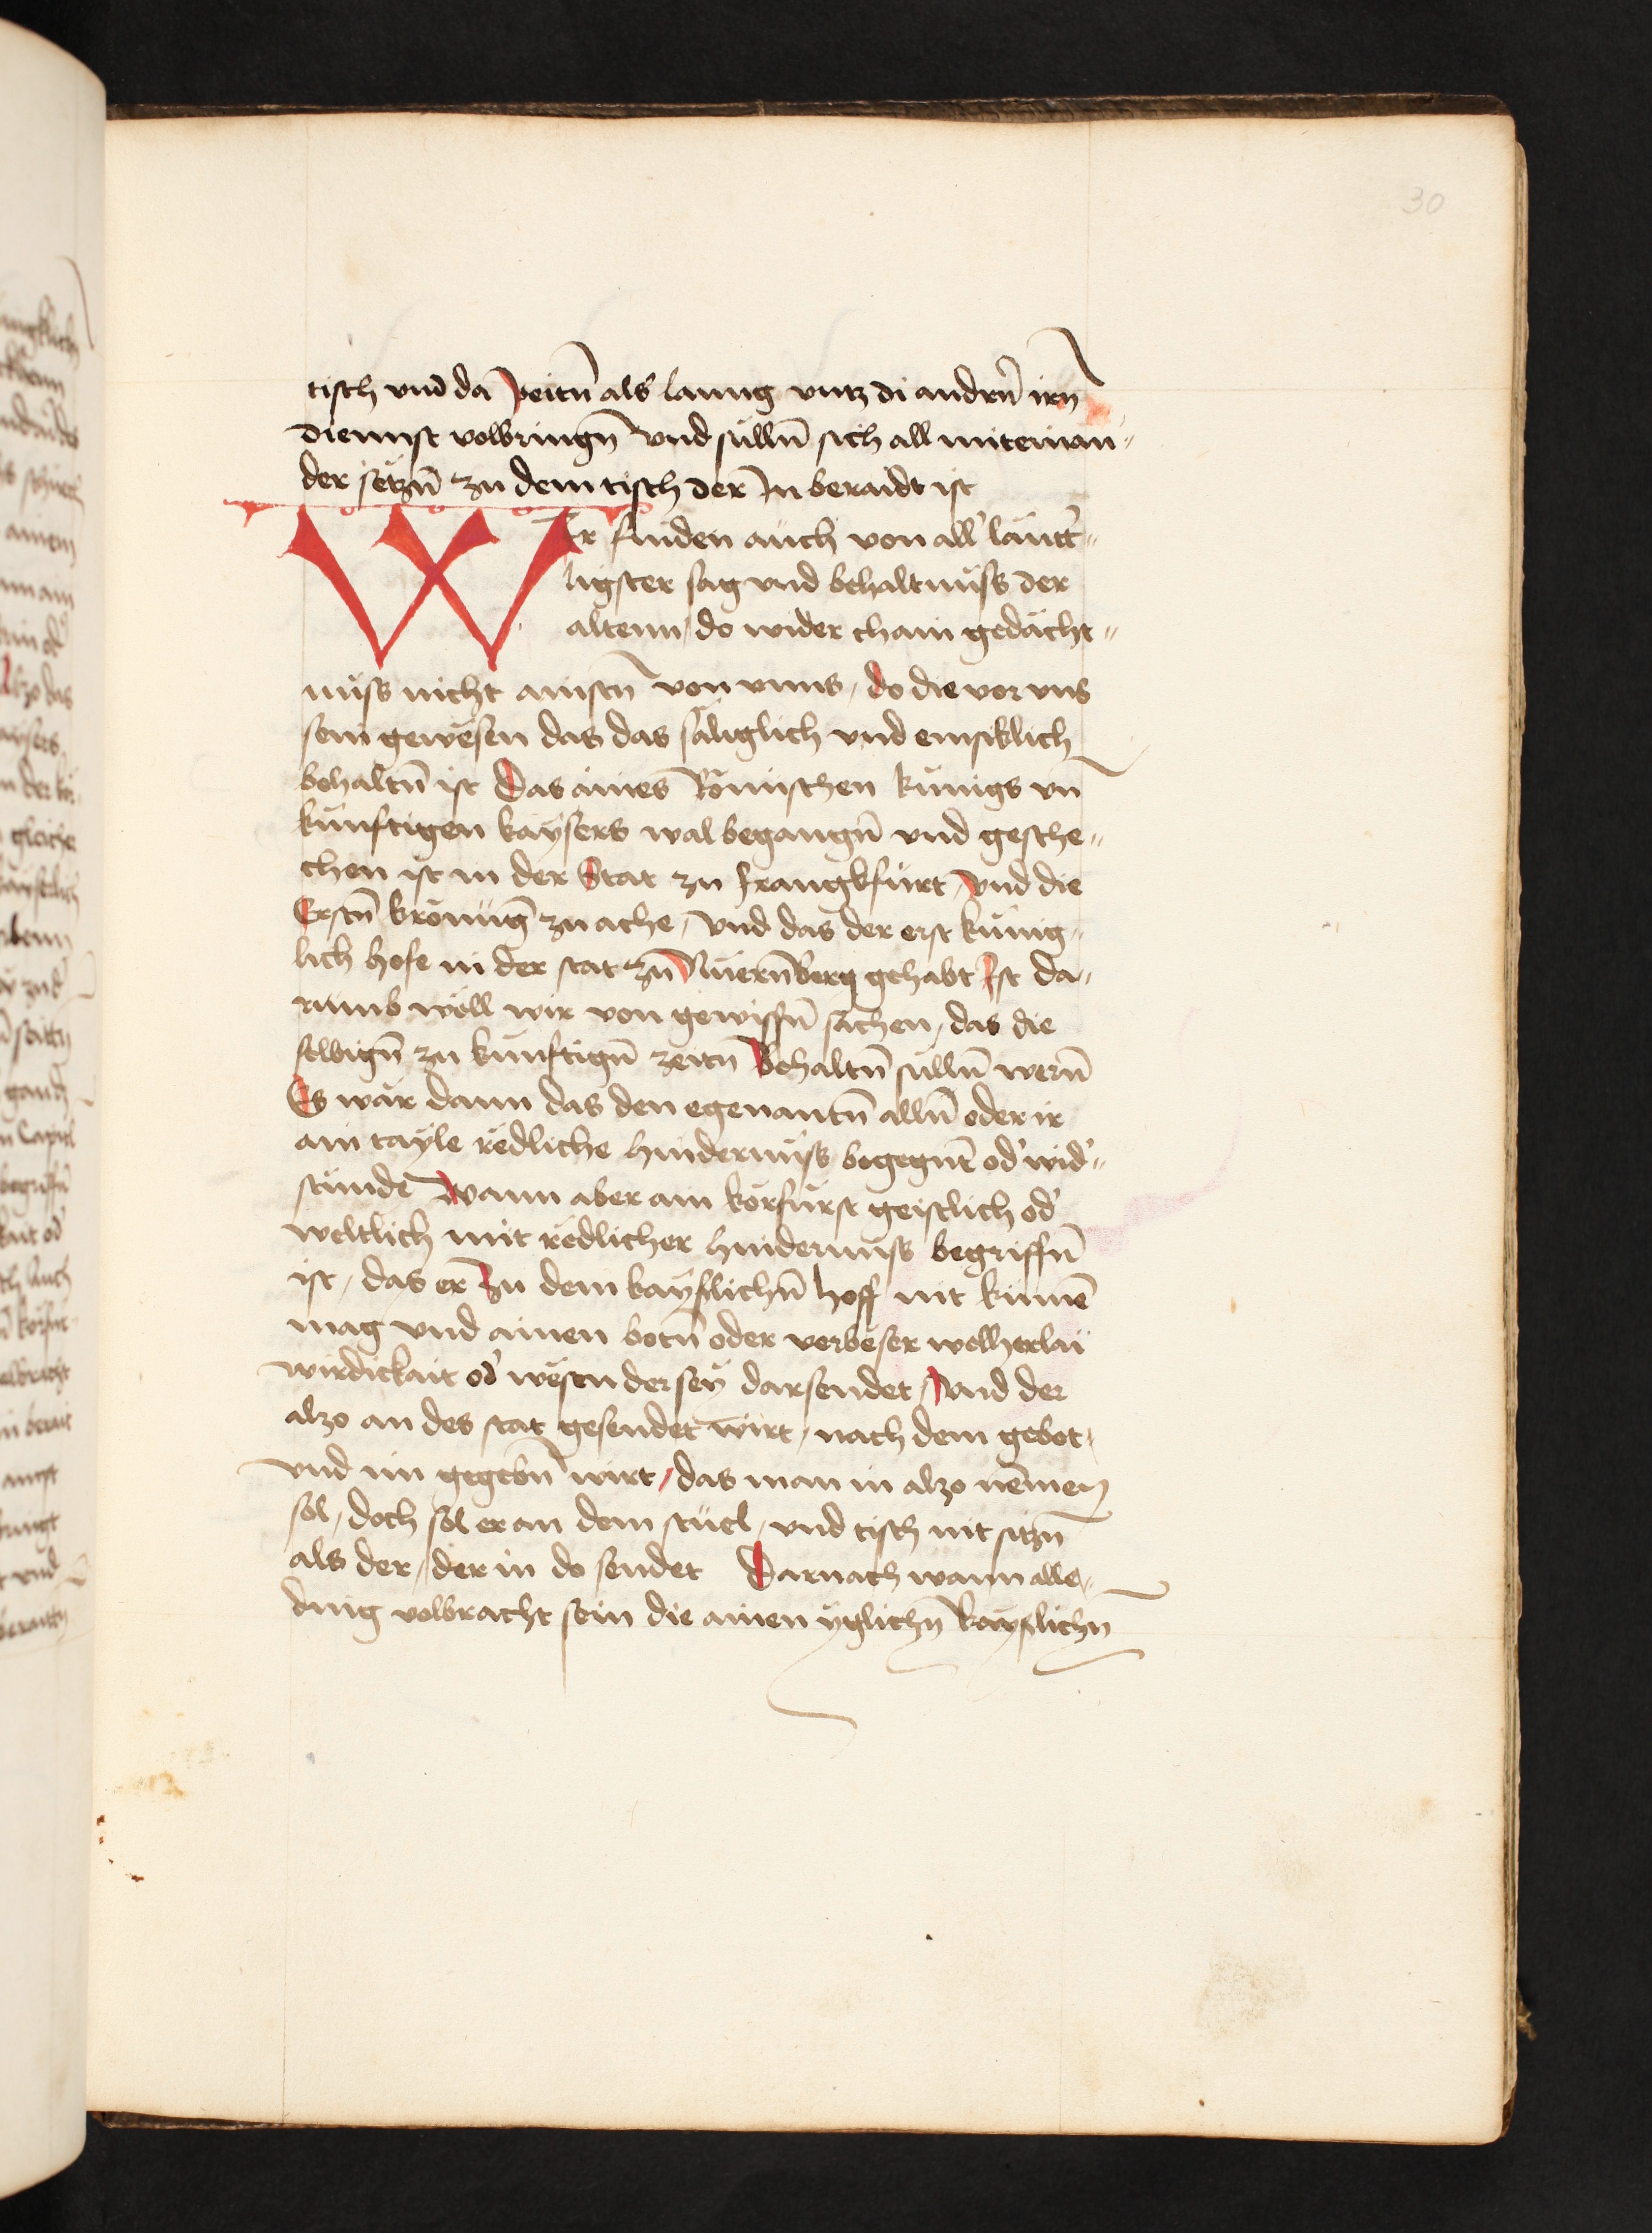 30
tisch vnd da peitn̄ als lanng vntz di andrn̄ irn̄
diennst volbringn̄ vnd süllen̄ sich all miteinan„
der setzn̄ zu dem tisch der In beraidt ist
Wir finden auch von all' lautt'„
ligster sag vnd behaltnüss der
altenn / do wider chain gedächt„
nüss nicht ainstn̄ von vnns / do die vor vns
sein gewesen das das säliglich vnd emsiklich
behaltn̄ ist Das aines Römischen künigs vn̄
künftigen kaysers wal begangn̄ vnd gesche„
chen ist in der Stat zu Franngkfurt / vnd die
Erstn̄ krönūg zu ache / vnd das der erst künig„
lich hofe in der stat zu Nüernberg gehabt Ist da„
rumb wöll wir von gewissn̄ sachen / das die
selbign̄ zu künftign̄ zeitn̄ Behaltn̄ süllen̄ wern̄
Es wär dann das den egenantn̄ allen̄ oder ir
ain tayle redliche hindernüss begegnt̄ od' wid'„
stünde Wann aber ain körfürst geistlich od'
weltlich mit redlicher hindernuss begriffn̄
ist / das er zu dem kayslichn̄ hoff nit kumē
mag vnd ainen botn̄ oder verbeser wellherlaÿ
wirdickait od' wesen der seÿ darsendet / Vnd der
alzo an des stat gesendet wirt / nach dem gebot /
vnd im gegebn̄ wirt / das man in alzo nemen
sol / doch sol er an dem stuel / vnd tisch nit sitzn̄
als der / der in do sendet Darnach wann alle„
ding volbracht sein die ainen yglichn̄ kayslichn̄